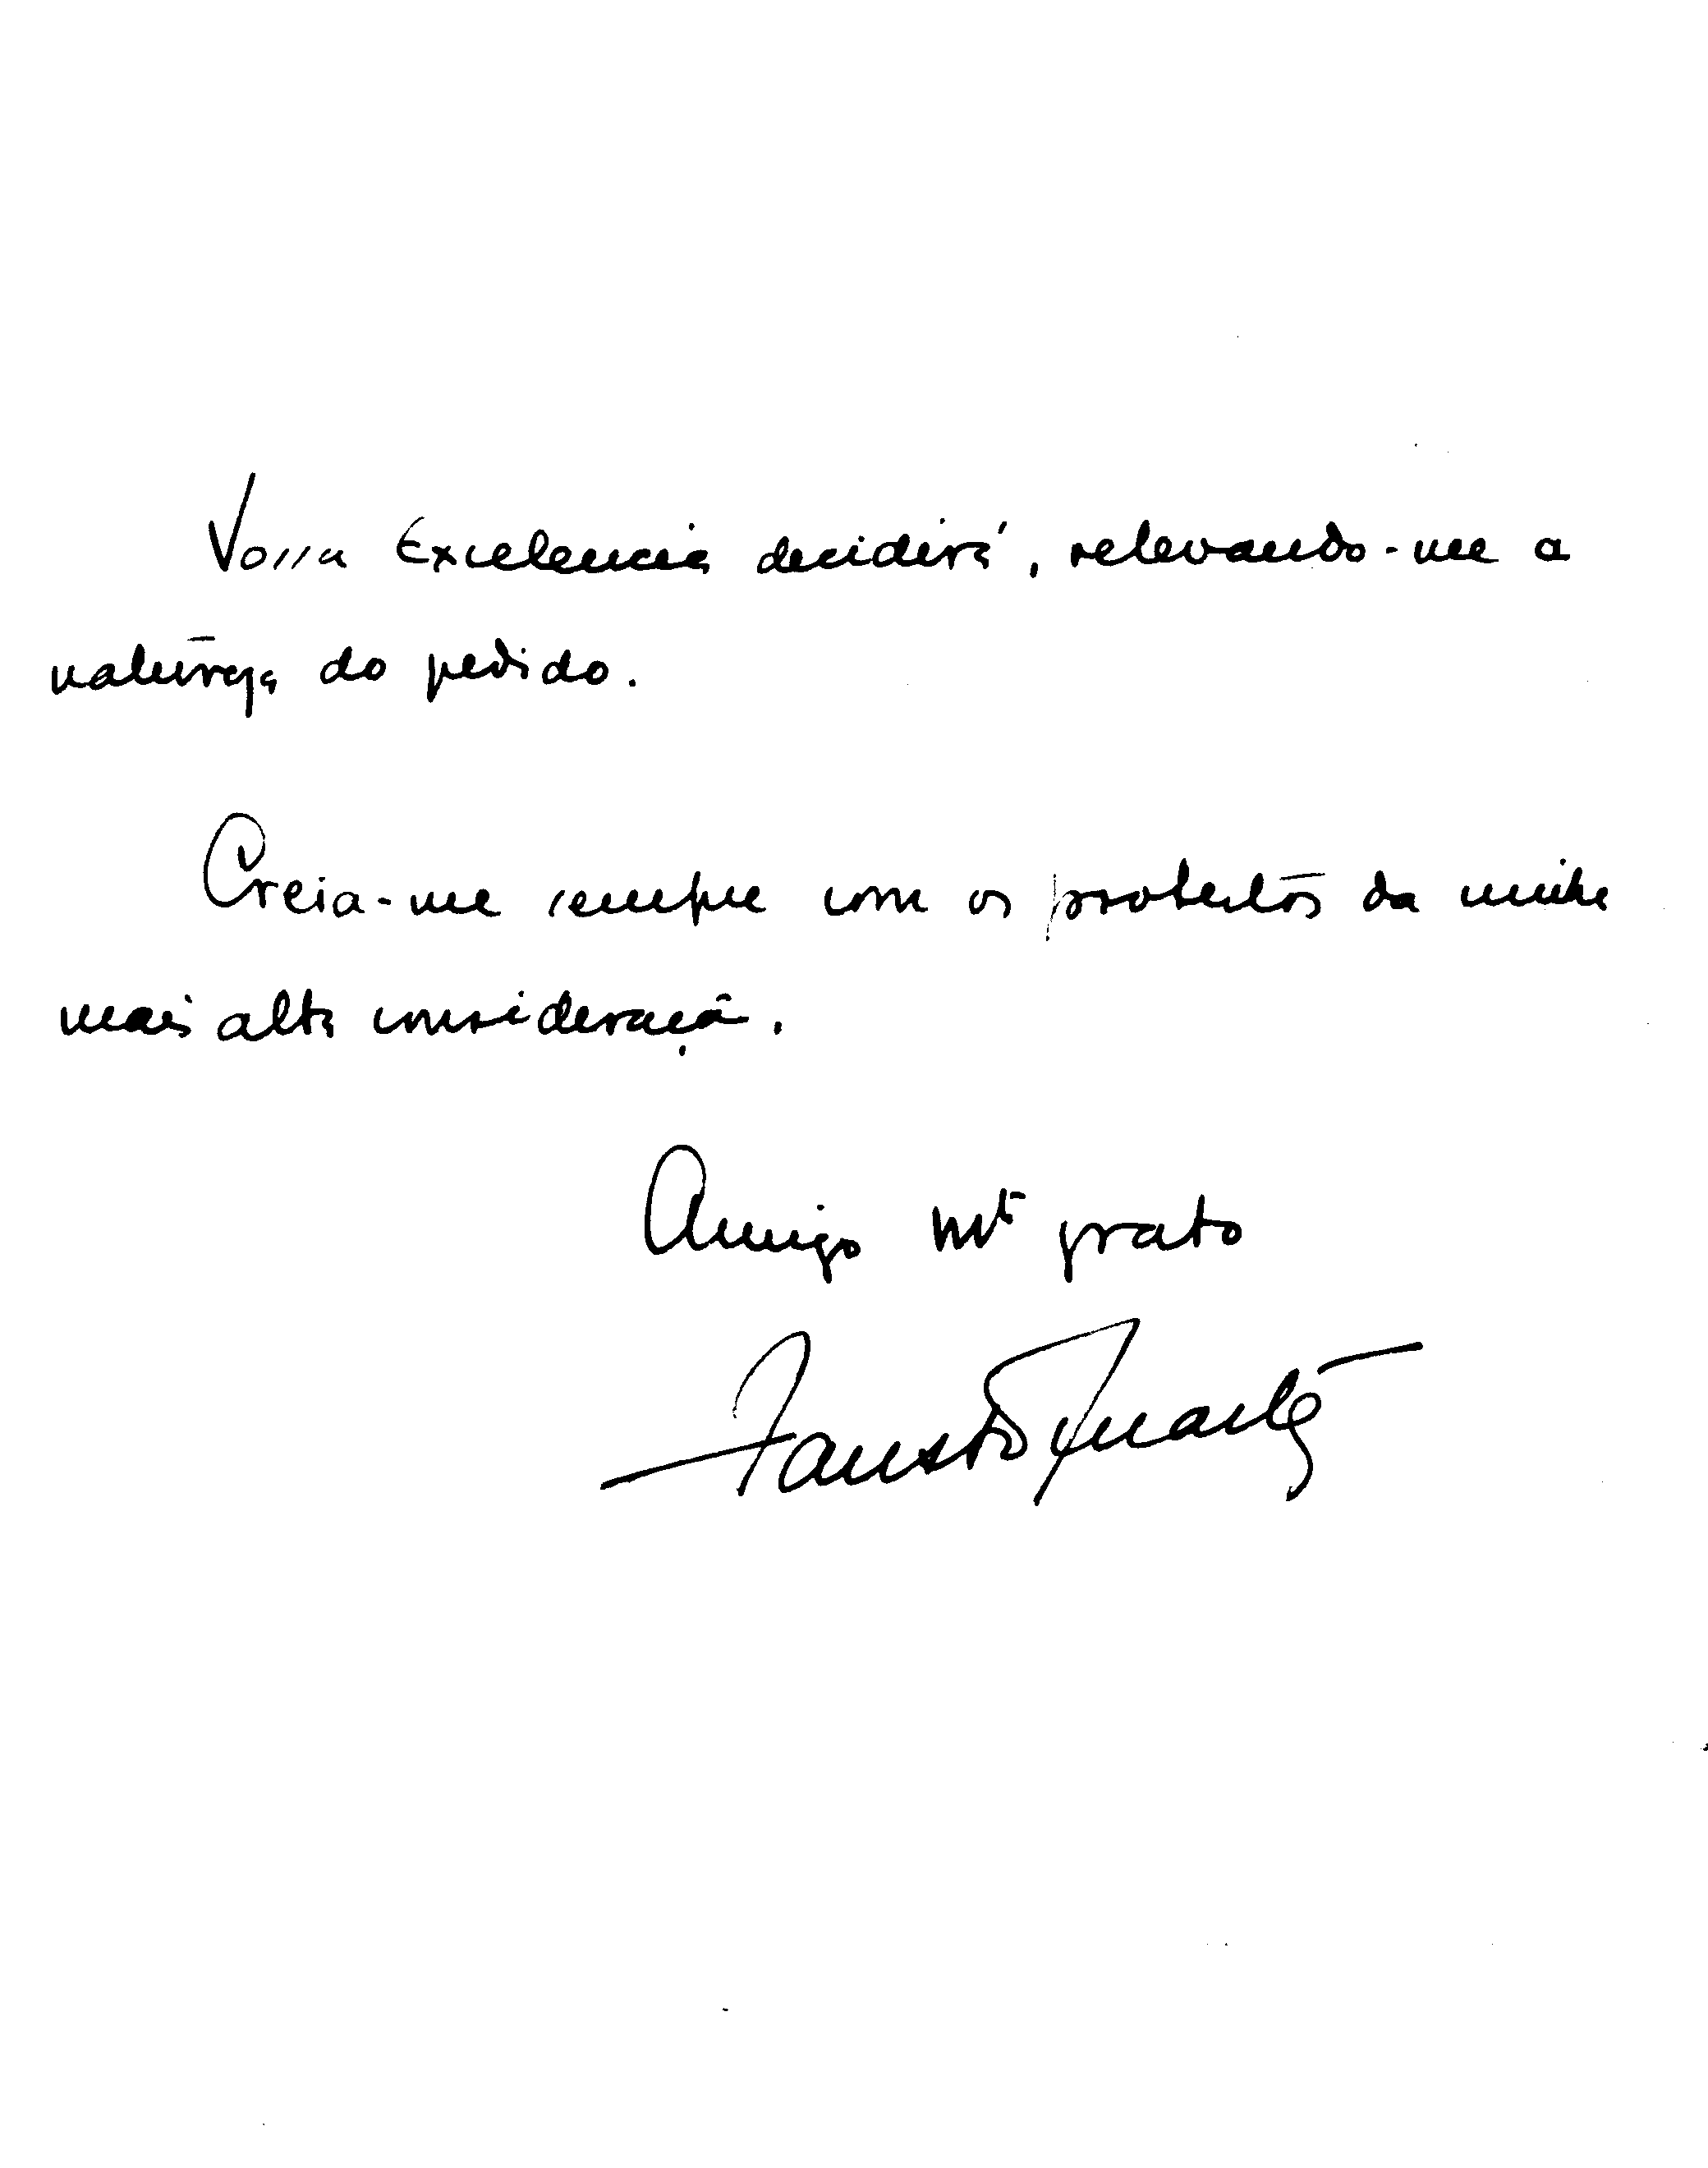 Vossa Excelencia decidirá, relevando-me a
natureza do pedido.
Creia-me sempre com os protestos da minha
mais alta consideração.
Amigo mt grato
Fausto Duarte